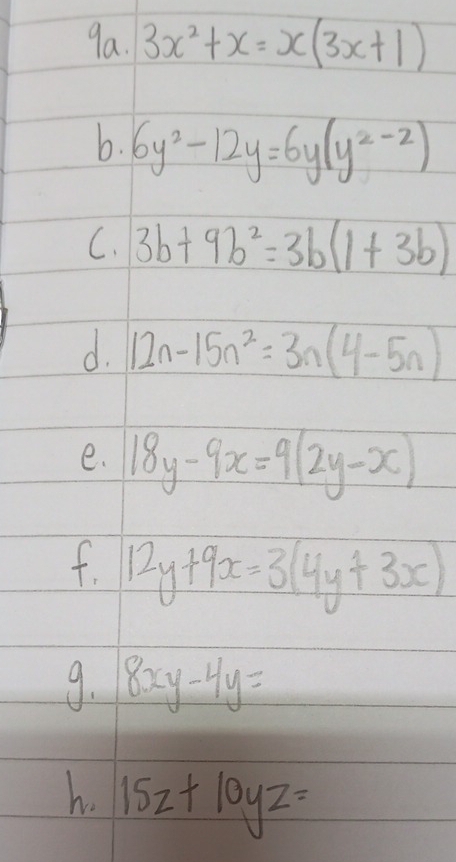 9a. 3x²+x=x(3x+1)
b. 6y²-12y=6y(y²⁻²)
c. 3b+9b²=3b(1+3b)
d. 12n-15n²=3n(4-5n)
e. 18y-9x=9(2y-x)
f. 12y+9x=3(4y+3x)
g. 8xy-4y=
h. 15z+10yz=